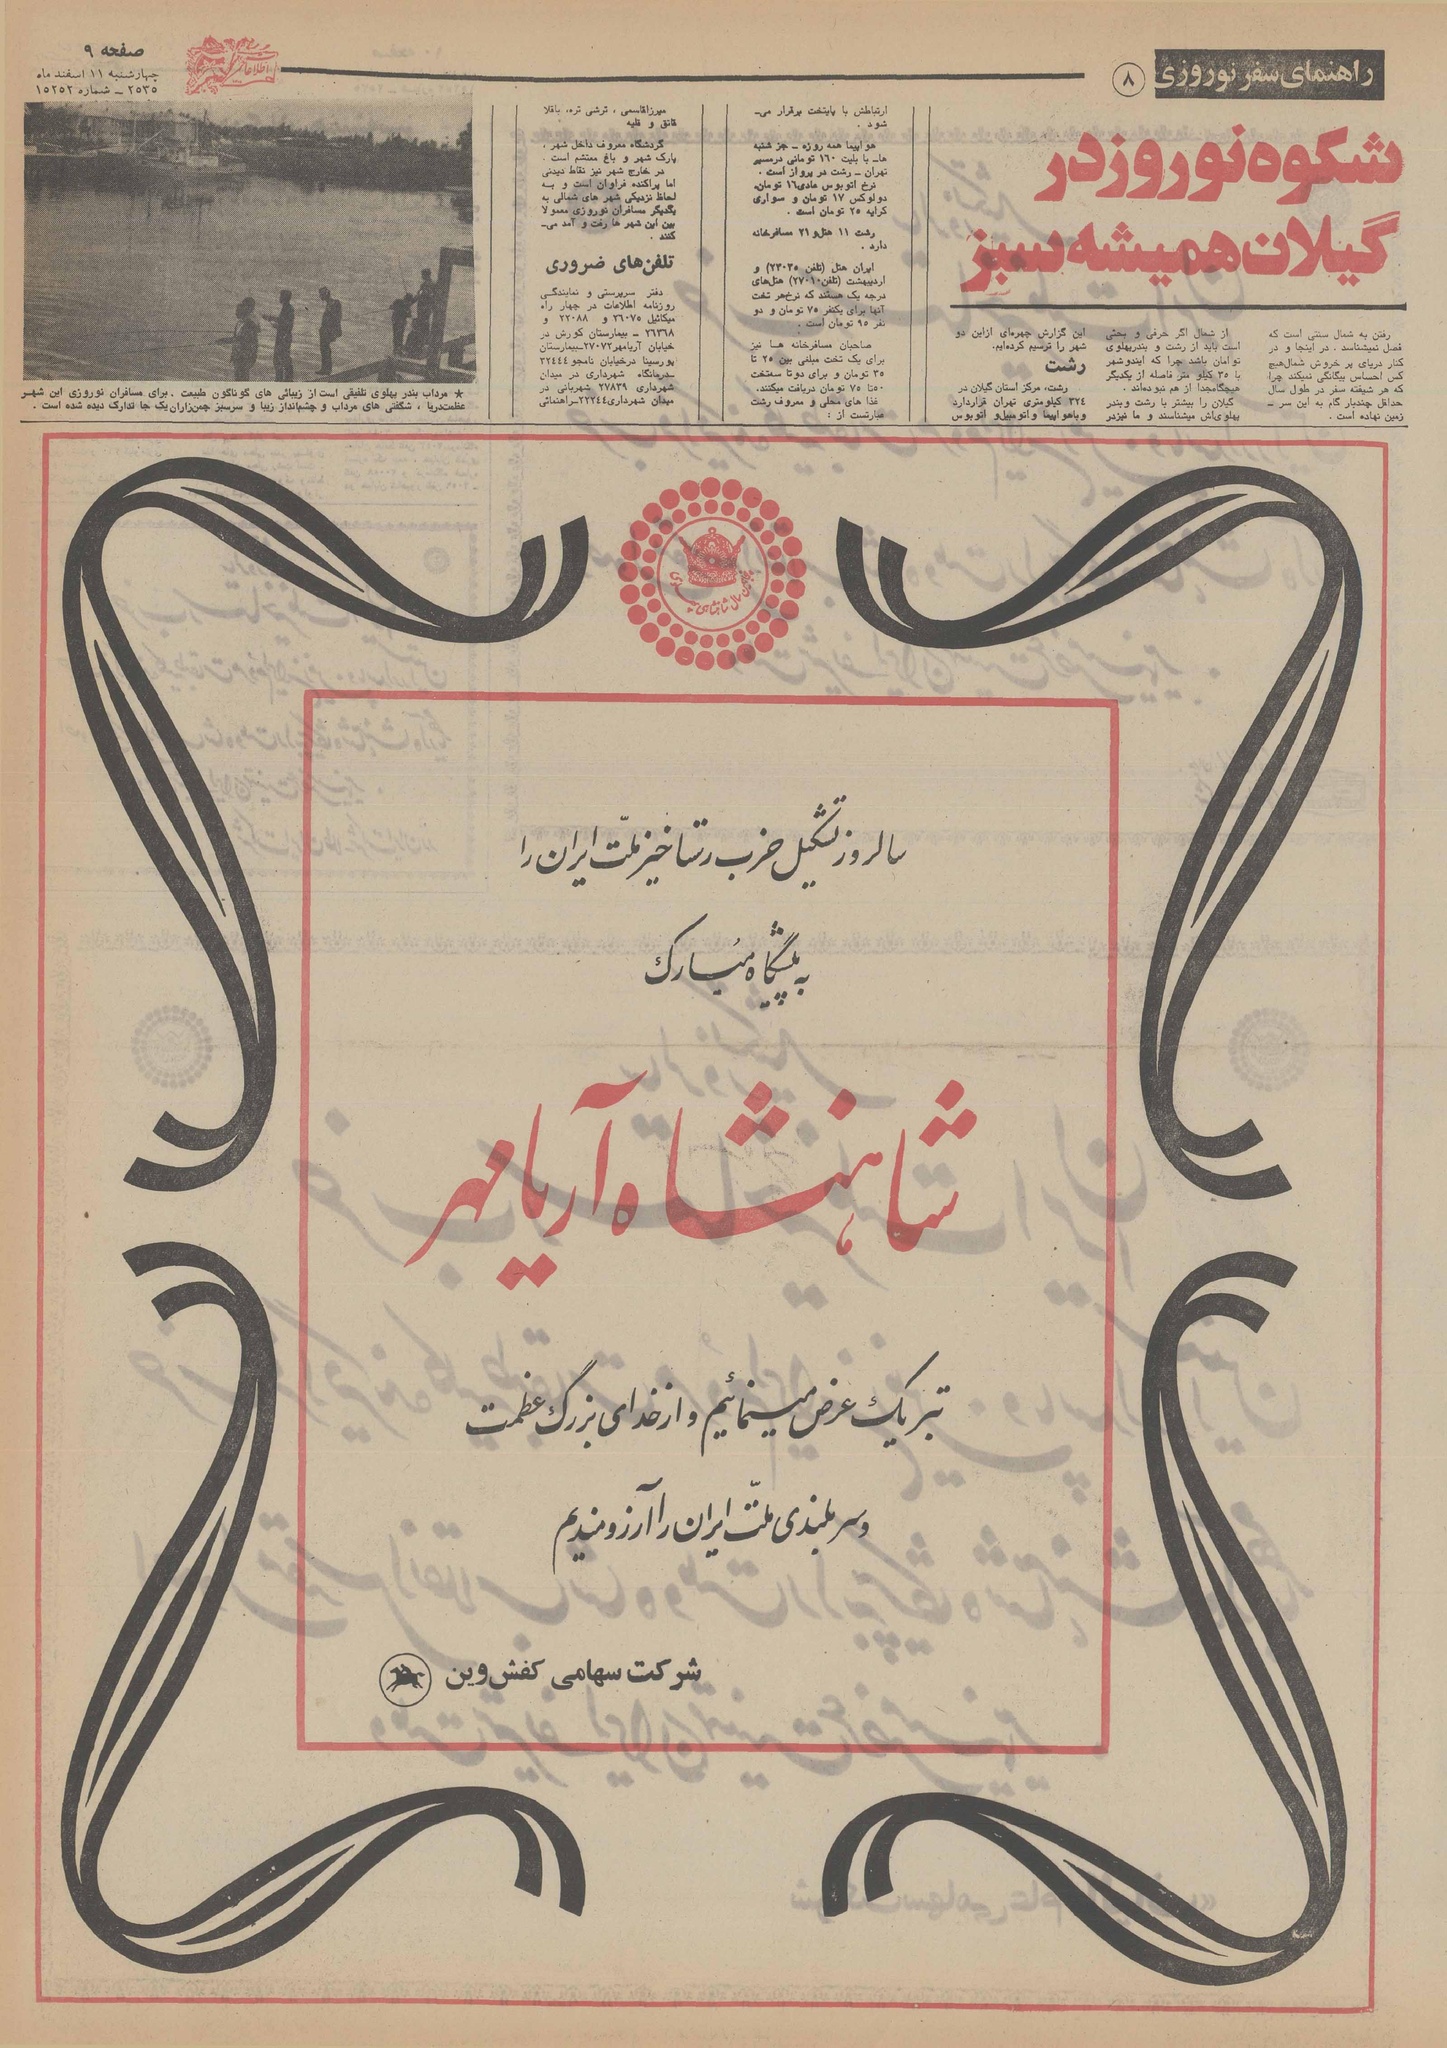 راهنمای سفر نوروزی
۸
صفحه ۹
چهارشنبه ۱۱ اسفند ماه
۲۵۳۵ ــ شماره ۱۵۲۵۲
شکوه نوروز در
گیلان همیشه سبز
رفتن به شمال سنتی است که
فصل نمیشناسد . در اینجا و در
کنار دریای پر خروش شمال هیچ
کس احساس بیگانگی نمیکند چرا
که هر شیفته سفر در طول سال
حداقل چندبار گام به این سر ــ
زمین نهاده است .
از شمال اگر حرفی و بحثی
است باید از رشت و بندرپهلوی
توأمان باشد چرا که ایندو شهر
با ۳۵ کیلو متر فاصله از یکدیگر
هیچگاه جدا از هم نبوده‌اند .
گیلان را بیشتر با رشت و بندر
پهلوی‌اش میشناسند و ما نیز در
این گزارش چهره‌ای ازاین دو
شهر را ترسیم کرده‌ایم.
رشت
رشت، مرکز استان گیلان در
۳۲۴ کیلومتری تهران قراردارد
وباهواپیما واتومبیل‌و اتوبوس
ارتباطش با پایتخت برقرار می‌ــ
شود .
هواپیما همه روزه ــ جز شنبه
ها ــ با بلیت ۱۶۰ تومانی درمسیر
تهران ــ رشت در پرواز است .
نرخ اتوبوس عادی ۱۶ تومان،
دولوکس ۱۷ تومان و سواری
کرایه ۲۵ تومان است .
رشت ۱۱ هتل‌و ۲۱ مسافرخانه
دارد .
ایران هتل (تلفن ۲۳۰۳۵) و
اردیبهشت (تلفن ۲۷۰۱۰) هتل‌های
درجه یک هستند که نرخ‌هر تخت
آنها برای یکنفر ۷۵ تومان و دو
نفر ۹۵ تومان است .
صاحبان مسافرخانه ها نیز
برای یک تخت مبلغی بین ۲۵ تا
۳۵ تومان و برای دوتا سه‌تخت
۵۰ تا ۷۵ تومان دریافت میکنند.
غذا های محلی و معروف رشت
عبارتست از :
میرزاقاسمی ، ترشی تره، باقلا
قاتق و قلیه
گردشگاه معروف داخل شهر ،
پارک شهر و باغ محتشم است .
در خارج شهر نیز نقاط دیدنی
اما پراکنده فراوان است و به
لحاظ نزدیکی شهر های شمالی به
یکدیگر مسافران نوروزی معمولا
بین این شهر ها رفت و آمد می‌ــ
کنند .
تلفن‌های ضروری
دفتر سرپرستی و نمایندگی
روزنامه اطلاعات در چهار راه
میکائیل ۲۶۰۷۵ و ۲۲۰۸۸ و
۲۶۳۶۸ ــ بیمارستان کورش در
خیابان آریامهر ۲۷۰۷۲ــبیمارستان
پورسینا درخیابان نامجو ۳۲۴۴۴
ــدرمانگاه شهرداری در میدان
شهرداری ۲۷۸۳۹ شهربانی در
میدان شهرداری ۲۲۲۴۴ــراهنمائی
* مرداب بندر پهلوی تلفیقی است از زیبائی های گوناگون طبیعت . برای مسافران نوروزی این شهر
عظمت‌دریا ، شگفتی های مرداب و چشم‌انداز زیبا و سرسبز چمن‌زاران یک جا تدارک دیده شده است .
سالروز تشکیل حزب رستاخیز ملّت ایران را
به پیشگاه مبارک
شاهنشاه آریامهر
تبریک عرض مینمائیم و از خدای بزرگ عظمت
و سربلندی ملّت ایران را آرزومندیم
شرکت سهامی کفش وین